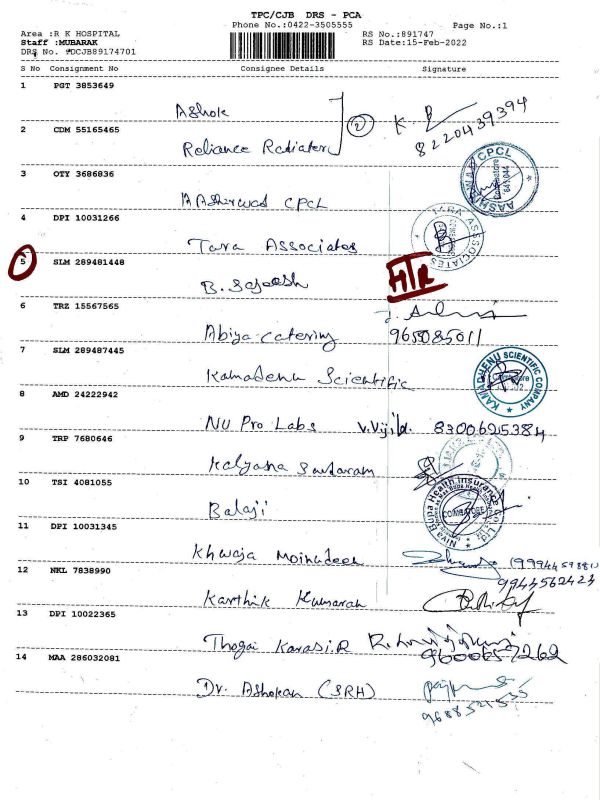 TPC/CJB DRS - PCA
Phone No.:0422-3505555 Page No.:1
Area :R K HOSPITAL RS No.:891747
Staff :MUBARAK RS Date:15-Feb-2022
DRS No. *DCJB89174701
S No Consignment No Consignee Details Signature
1 PGT 3853649
Ashok
2 CDM 55165465 2 8220439394
Reliance Radiater
3 OTY 3686836
AASHIRWAD CPCL
CPCL
4 DPI 10031266
TARA ASSOCIATES
Tara Associates
5 SLM 289481448
B. Sajeesh HTR
6 TRZ 15567565
Abiya catering 965085011
7 SLM 289487445
Kamadenu Scientific
KAMADHENU SCIENTIFIC COMPANY
8 AMD 24222942
NU Pro Labs V.Vijild. 8300625384
9 TRP 7680646
Kalyana Sundaram
10 TSI 4081055
Niva Bupa Health Insurance Co. Ltd.
COIMBATORE
Balaji
11 DPI 10031345
Khwaja Moinudeen
12 NKL 7838990 9944562423
Karthik Kumaran
13 DPI 10022365
Thogai Karasi.R 9600657262
14 MAA 286032081
Dr. Ashokan (SRH)
9688521555